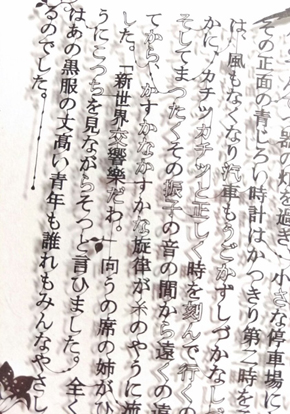 器の灯を過ぎ、小さな停車場に
その正面の青じろい時計はかっきり第二時を
は、風もなくなり汽車もうごかずしづかなし
かに、カチッカチッと正しく時を刻んで行くの
そしてまったくその振子の音の間から遠くの遠
てから、かすかなかすかな旋律が糸のやうに流
した。「新世界交響楽だわ。」向うの席の姉がひ
うにこっちを見ながらそっと言ひました。全く
はあの黒服の丈高い青年も誰れもみんなやさし
るのでした。